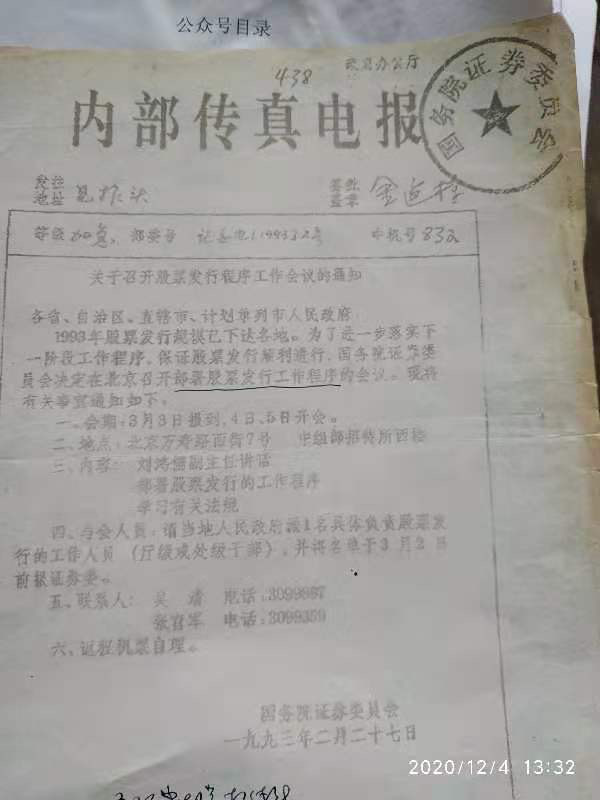 公众号目录
438
办公厅
国务院证券委员会
内部传真电报
发往
地址 见报头
签批
盖章
等级 加急
关于召开股票发行程序工作会议的通知
各省、自治区、直辖市、计划单列市人民政府:
1993年股票发行规模已下达各地。为了进一步落实下
一阶段工作程序,保证股票发行顺利进行,国务院证券委
员会决定在北京召开部署股票发行工作程序的会议。现将
有关事宜通知如下。
一、会期:3月3日报到,4日、5日开会。
二、地点:北京万寿路西街7号 中组部招待所西楼
三、内容: 刘鸿儒副主任讲话
部署股票发行的工作程序
学习有关法规
四、与会人员:请当地人民政府派1名具体负责股票发
行的工作人员(厅级或处级干部),并将名单于3月2日
前报证券委。
五、联系人: 吴 电话:3099887
张 军 电话:3099359
六、返程机票自理。
国务院证券委员会
一九九三年二月二十七日
2020/12/4 13:32